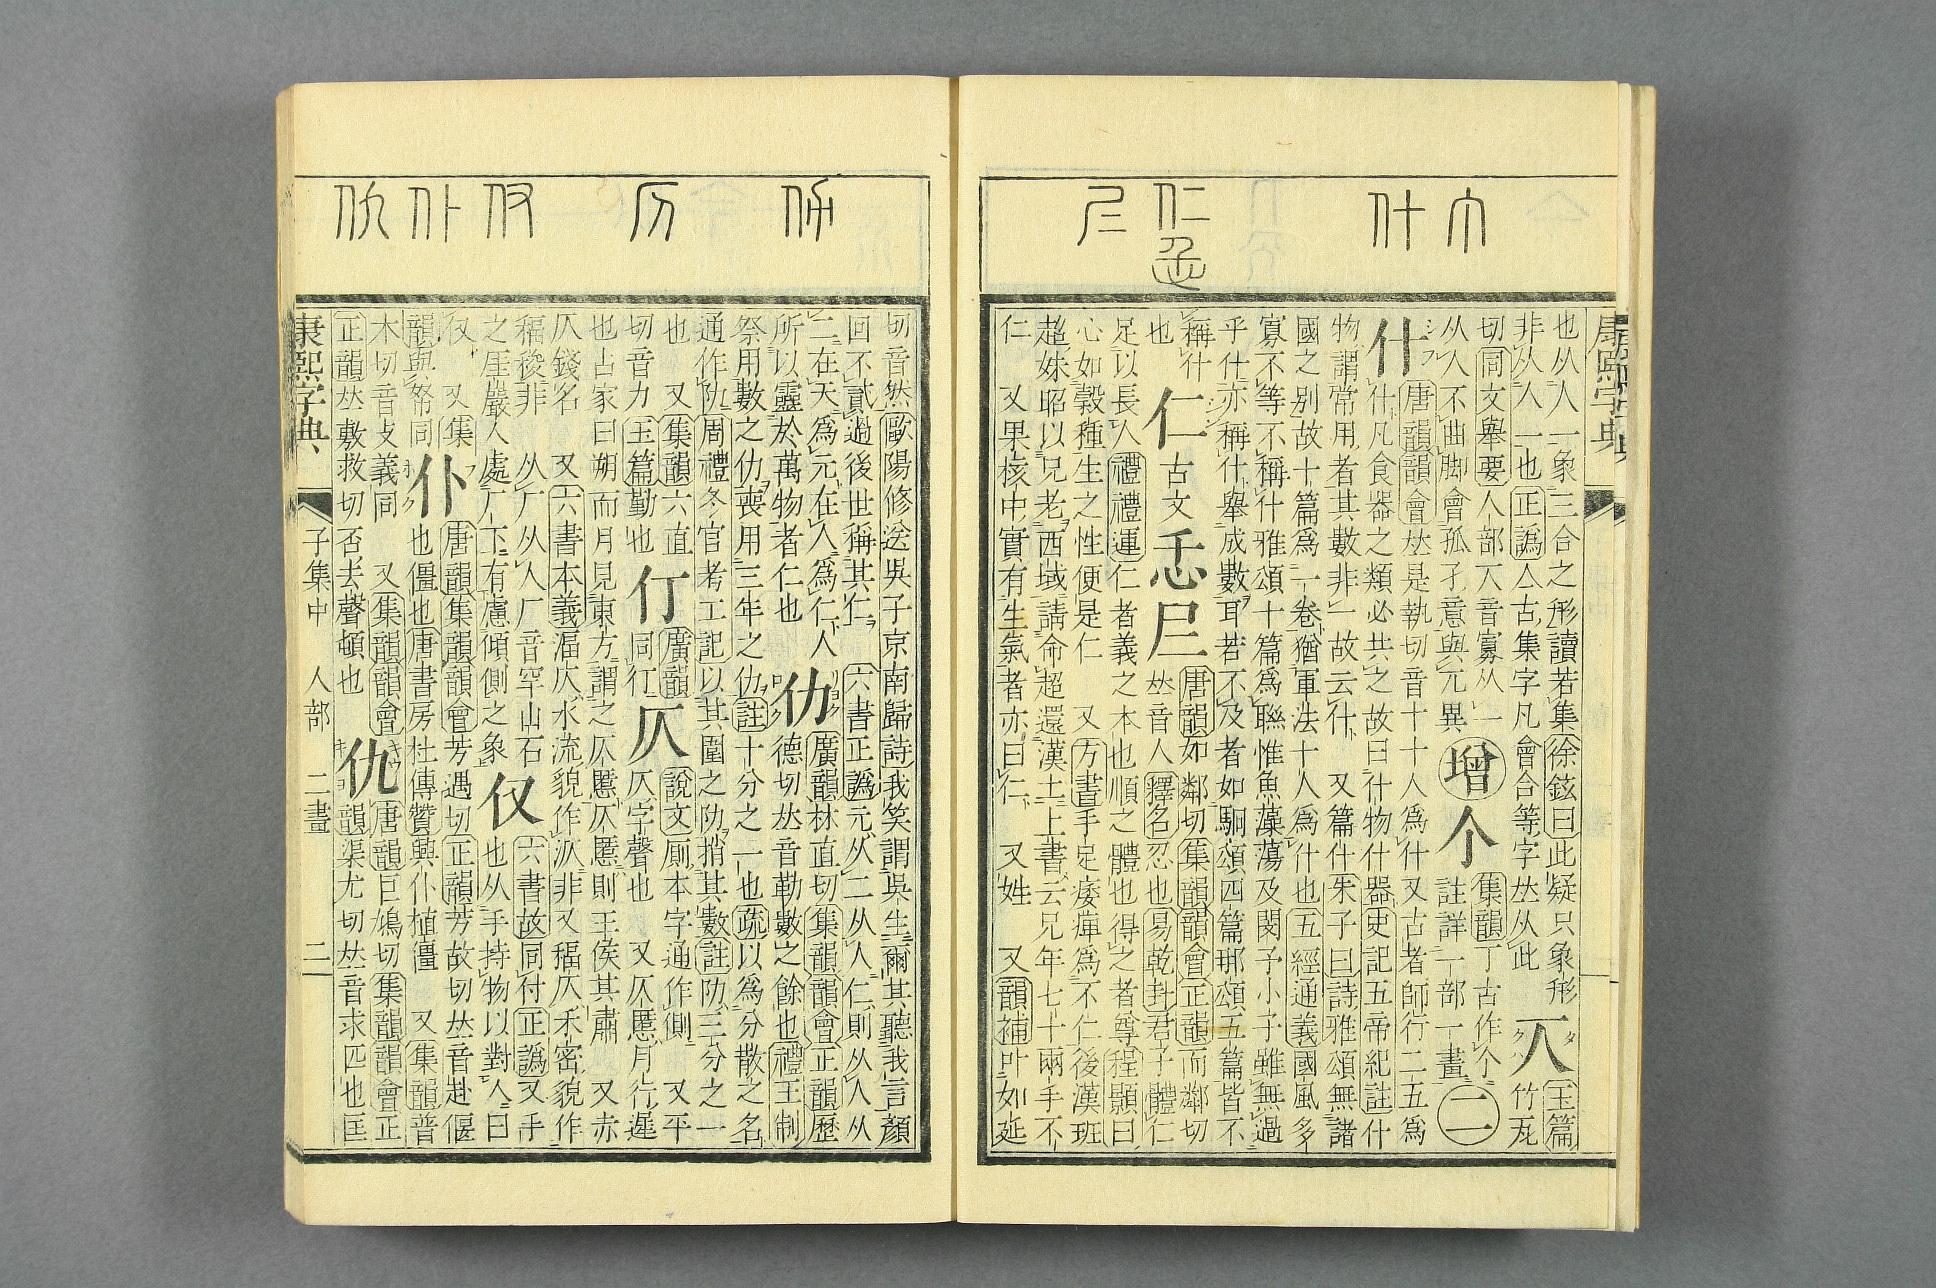 康熙字典
也从人一象三合之形讀若集徐鉉曰此疑只象形 玉篇
非从入一也正譌亼古集字凡會合等字𠀤从此 竹瓦
切同文舉要人部 音寡从一 增 个 集韻丁古作个
从人不曲脚會孤孔意與兀異 註詳丨部一畫 二
什 唐韻韻會𠀤是執切音十十人爲什又古者師行二五爲
什什凡食器之類必共之故曰什物什器史記五帝紀註什
物謂常用者其數非一故云什 又篇什朱子曰詩雅頌無諸
國之別故十篇爲一卷猶軍法十人爲什也五經通義國風多
寡不等不稱什雅頌十篇爲聯惟魚藻蕩及閔予小子雖無過
乎什亦稱什舉成數耳若不及者如駉頌四篇那頌五篇皆不
稱什 仁 古文 忎 𡰥 唐韻如鄰切集韻韻會正韻而鄰切
也 𠀤音人釋名忍也易乾卦君子體仁
足以長人禮禮運仁者義之本也順之體也得之者尊程顥曰
心如穀種生之性便是仁 又方書手足痿痺爲不仁後漢班
超妹昭以兄老西域請命超還漢土上書云兄年七十兩手不
仁 又果核中實有生氣者亦曰仁 又姓 又韻補叶如延
切音然歐陽修送吳子京南歸詩我笑謂吳生爾其聽我言顏
回不貳過後世稱其仁 六書正譌元从二从人仁則从人从
二在天爲元在人爲仁人 仂 廣韻林直切集韻韻會正韻歷
所以靈於萬物者仁也 德切𠀤音勒數之餘也禮王制
祭用數之仂喪用三年之仂註十分之一也疏以爲分散之名
通作阞周禮冬官考工記以其圍之阞捎其數註阞三分之一
也 又集韻六直 仃 廣韻 仄 說文厠本字通作側 又平
切音力玉篇勤也 同行 仄字聲也 又仄慝月行遲
也占家曰朔而月見東方謂之仄慝仄慝則王侯其肅 又赤
仄錢名 又六書本義湢仄水流貌作派非又稫仄禾密貌作
稫稄非 从厂从人厂音罕山石 仅 六書故同付正譌又手
之厓巖人處厂下有慮傾側之象 也从手持物以對人曰
仅 又集 仆 唐韻集韻韻會芳遇切正韻芳故切𠀤音赴偃
韻與幣同 也僵也唐書房杜傳贊興仆植僵 又集韻普
木切音攴義同 又集韻韻會 仇 唐韻巨鳩切集韻韻會正
正韻𠀤敷救切否去聲頓也 韻渠尤切𠀤音求匹也匡
康熙字典 子集中 人部 二畫 二